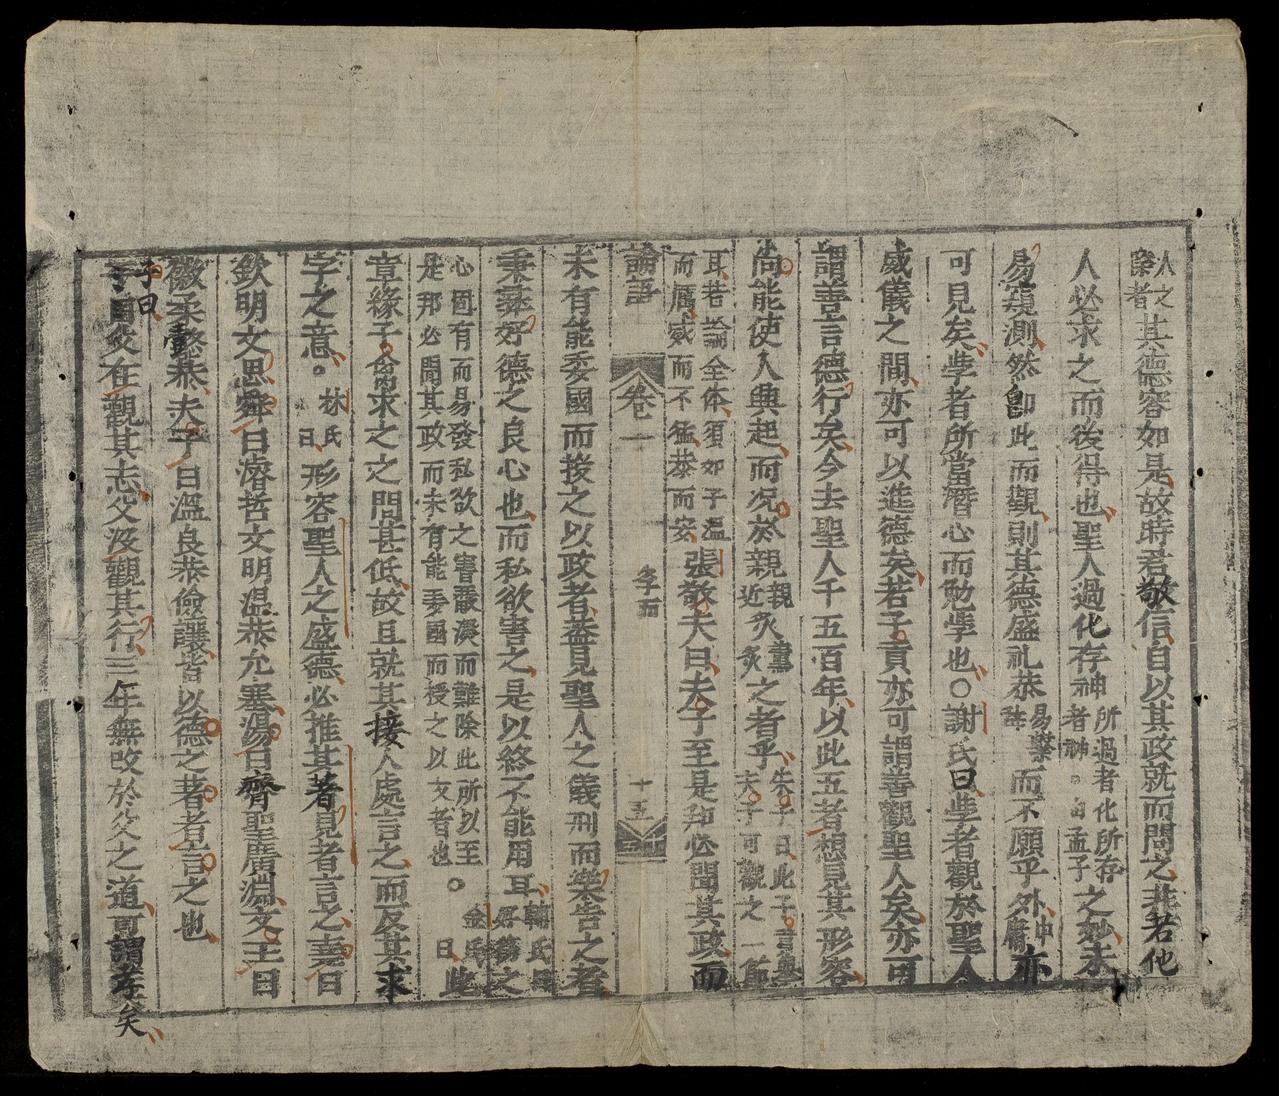 人之際者其德容如是故時君敬信自以其政就而問之非若他
人必求之而後得也聖人過化存神所過者化所存者神曰孟子之妙未
易窺測然即此而觀則其德盛礼恭易繫辞而不願乎外中庸亦
可見矣學者所當潛心而勉學也○謝氏曰學者觀於聖人
威儀之間亦可以進德矣若子貢亦可謂善觀聖人矣亦可
謂善言德行矣今去聖人千五百年以此五者想見其形容
尚能使人興起而况於親親近炙薰炙之者乎朱子曰此子貢舉夫子可觀之一節
耳若論全体須如子溫而厲威而不猛恭而安張敬夫曰夫子至是邦必聞其政而
論語 卷一 学而 十五
未有能委國而授之以政者盖見聖人之儀刑而樂告之者
秉彝好德之良心也而私欲害之是以終不能用耳輔氏曰好善之
心固有而易發私欲之害最深而難除此所以至是邦必聞其政而未有能委國而授之以政者也○金氏曰此
章緣子禽求之之問甚低故且就其接人處言之而反其求
字之意○林氏曰形容聖人之盛德必推其著見者言之堯曰
欽明文思舜曰濬哲文明温恭允塞湯曰齊聖廣淵文王曰
徽柔懿恭夫子曰溫良恭儉讓皆以德之著者言之也
子曰父在觀其志父没觀其行三年無改於父之道可謂孝矣